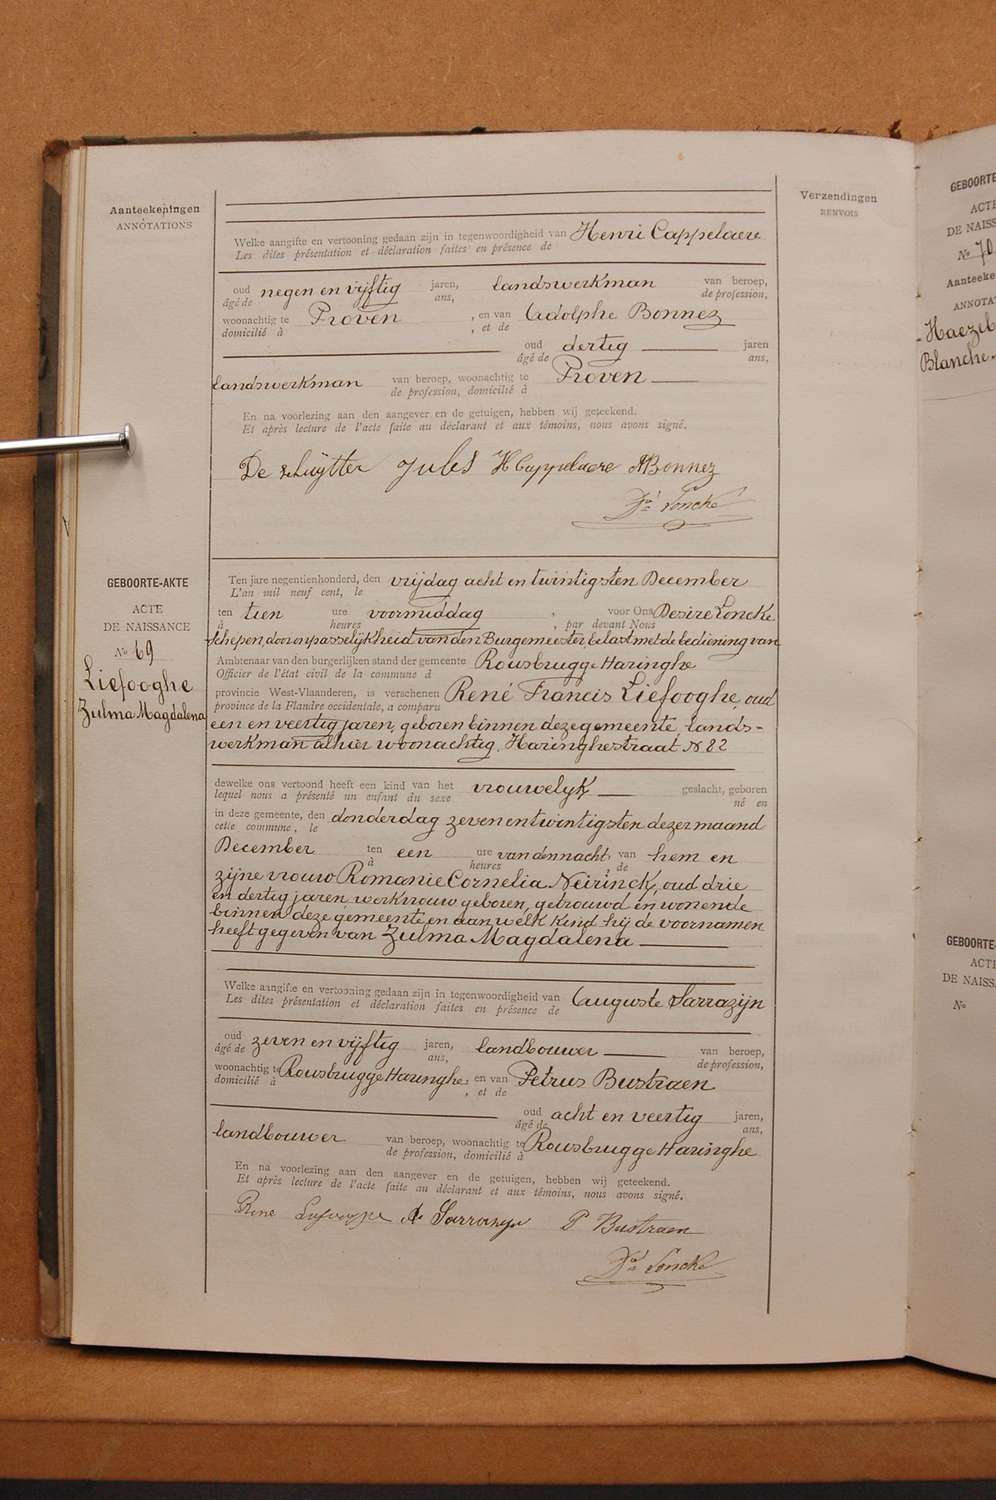 Aanteekeningen
ANNOTATIONS
Verzendingen
RENVOIS
Welke aangifte en vertooning gedaan zijn in tegenwoordigheid van Henri Cappelaere
Les dites présentation et déclaration faites en présence de
oud negen en vijftig jaren, landswerkman van beroep,
âgé de ans, de profession,
woonachtig te Proven , en van Adolphe Bonnez
domicilié à , et de
oud dertig jaren
âgé de ans,
landswerkman van beroep, woonachtig te Proven
de profession, domicilié à
En na voorlezing aan den aangever en de getuigen, hebben wij geteekend.
Et après lecture de l'acte faite au déclarant et aux témoins, nous avons signé.
Jules H Cappelaere ABonnez
Loncke
GEBOORTE-AKTE
ACTE
DE NAISSANCE
No 69
Liefooghe
Zulma Magdalena
Ten jare negentienhonderd, den vrijdag acht en twintigsten December
L'an mil neuf cent, le
ten tien ure voormiddag , voor Ons Desiré Loncke
à heures , par devant Nous
schepen, door onpasselijkheid van den Burgemeester, belast met de bediening van
Ambtenaar van den burgerlijken stand der gemeente Rousbrugge Haringhe
Officier de l'état civil de la commune à
provincie West-Vlaanderen, is verschenen René Francis Liefooghe, oud
province de la Flandre occidentale, a comparu
een en veertig jaren, geboren binnen deze gemeente, lands-
werkman alhier woonachtig, Haringhestraat N 82
dewelke ons vertoond heeft een kind van het vrouwelijk geslacht, geboren
lequel nous a présenté un enfant du sexe né en
in deze gemeente, den donderdag zeven en twintigsten dezer maand
cette commune, le
December ten een ure van den nacht, van hem en
à heures , de
zijne vrouw Romanie Cornelia Neirinck, oud drie
en dertig jaren, werkvrouw geboren, getrouwd en wonende
binnen deze gemeente en aan welk kind hij de voornamen
heeft gegeven van Zulma Magdalena
Welke aangifte en vertooning gedaan zijn in tegenwoordigheid van Auguste Sarrazijn
Les dites présentation et déclaration faites en présence de
oud zeven en vijftig jaren, landbouwer van beroep,
âgé de ans, de profession,
woonachtig te Rousbrugge Haringhe, en van Petrus Bustraen
domicilié à , et de
oud acht en veertig jaren,
âgé de ans,
landbouwer van beroep, woonachtig te Rousbrugge Haringhe
de profession, domicilié à
En na voorlezing aan den aangever en de getuigen, hebben wij geteekend.
Et après lecture de l'acte faite au déclarant et aux témoins, nous avons signé.
Rene A Sarrazyn P Bustraen
Loncke
GEBOORTE
ACTE
DE NAISS
No 70
Aanteeke
ANNOTA
Haezeb
Blanche
GEBOORTE-
ACTE
DE NAISS
No